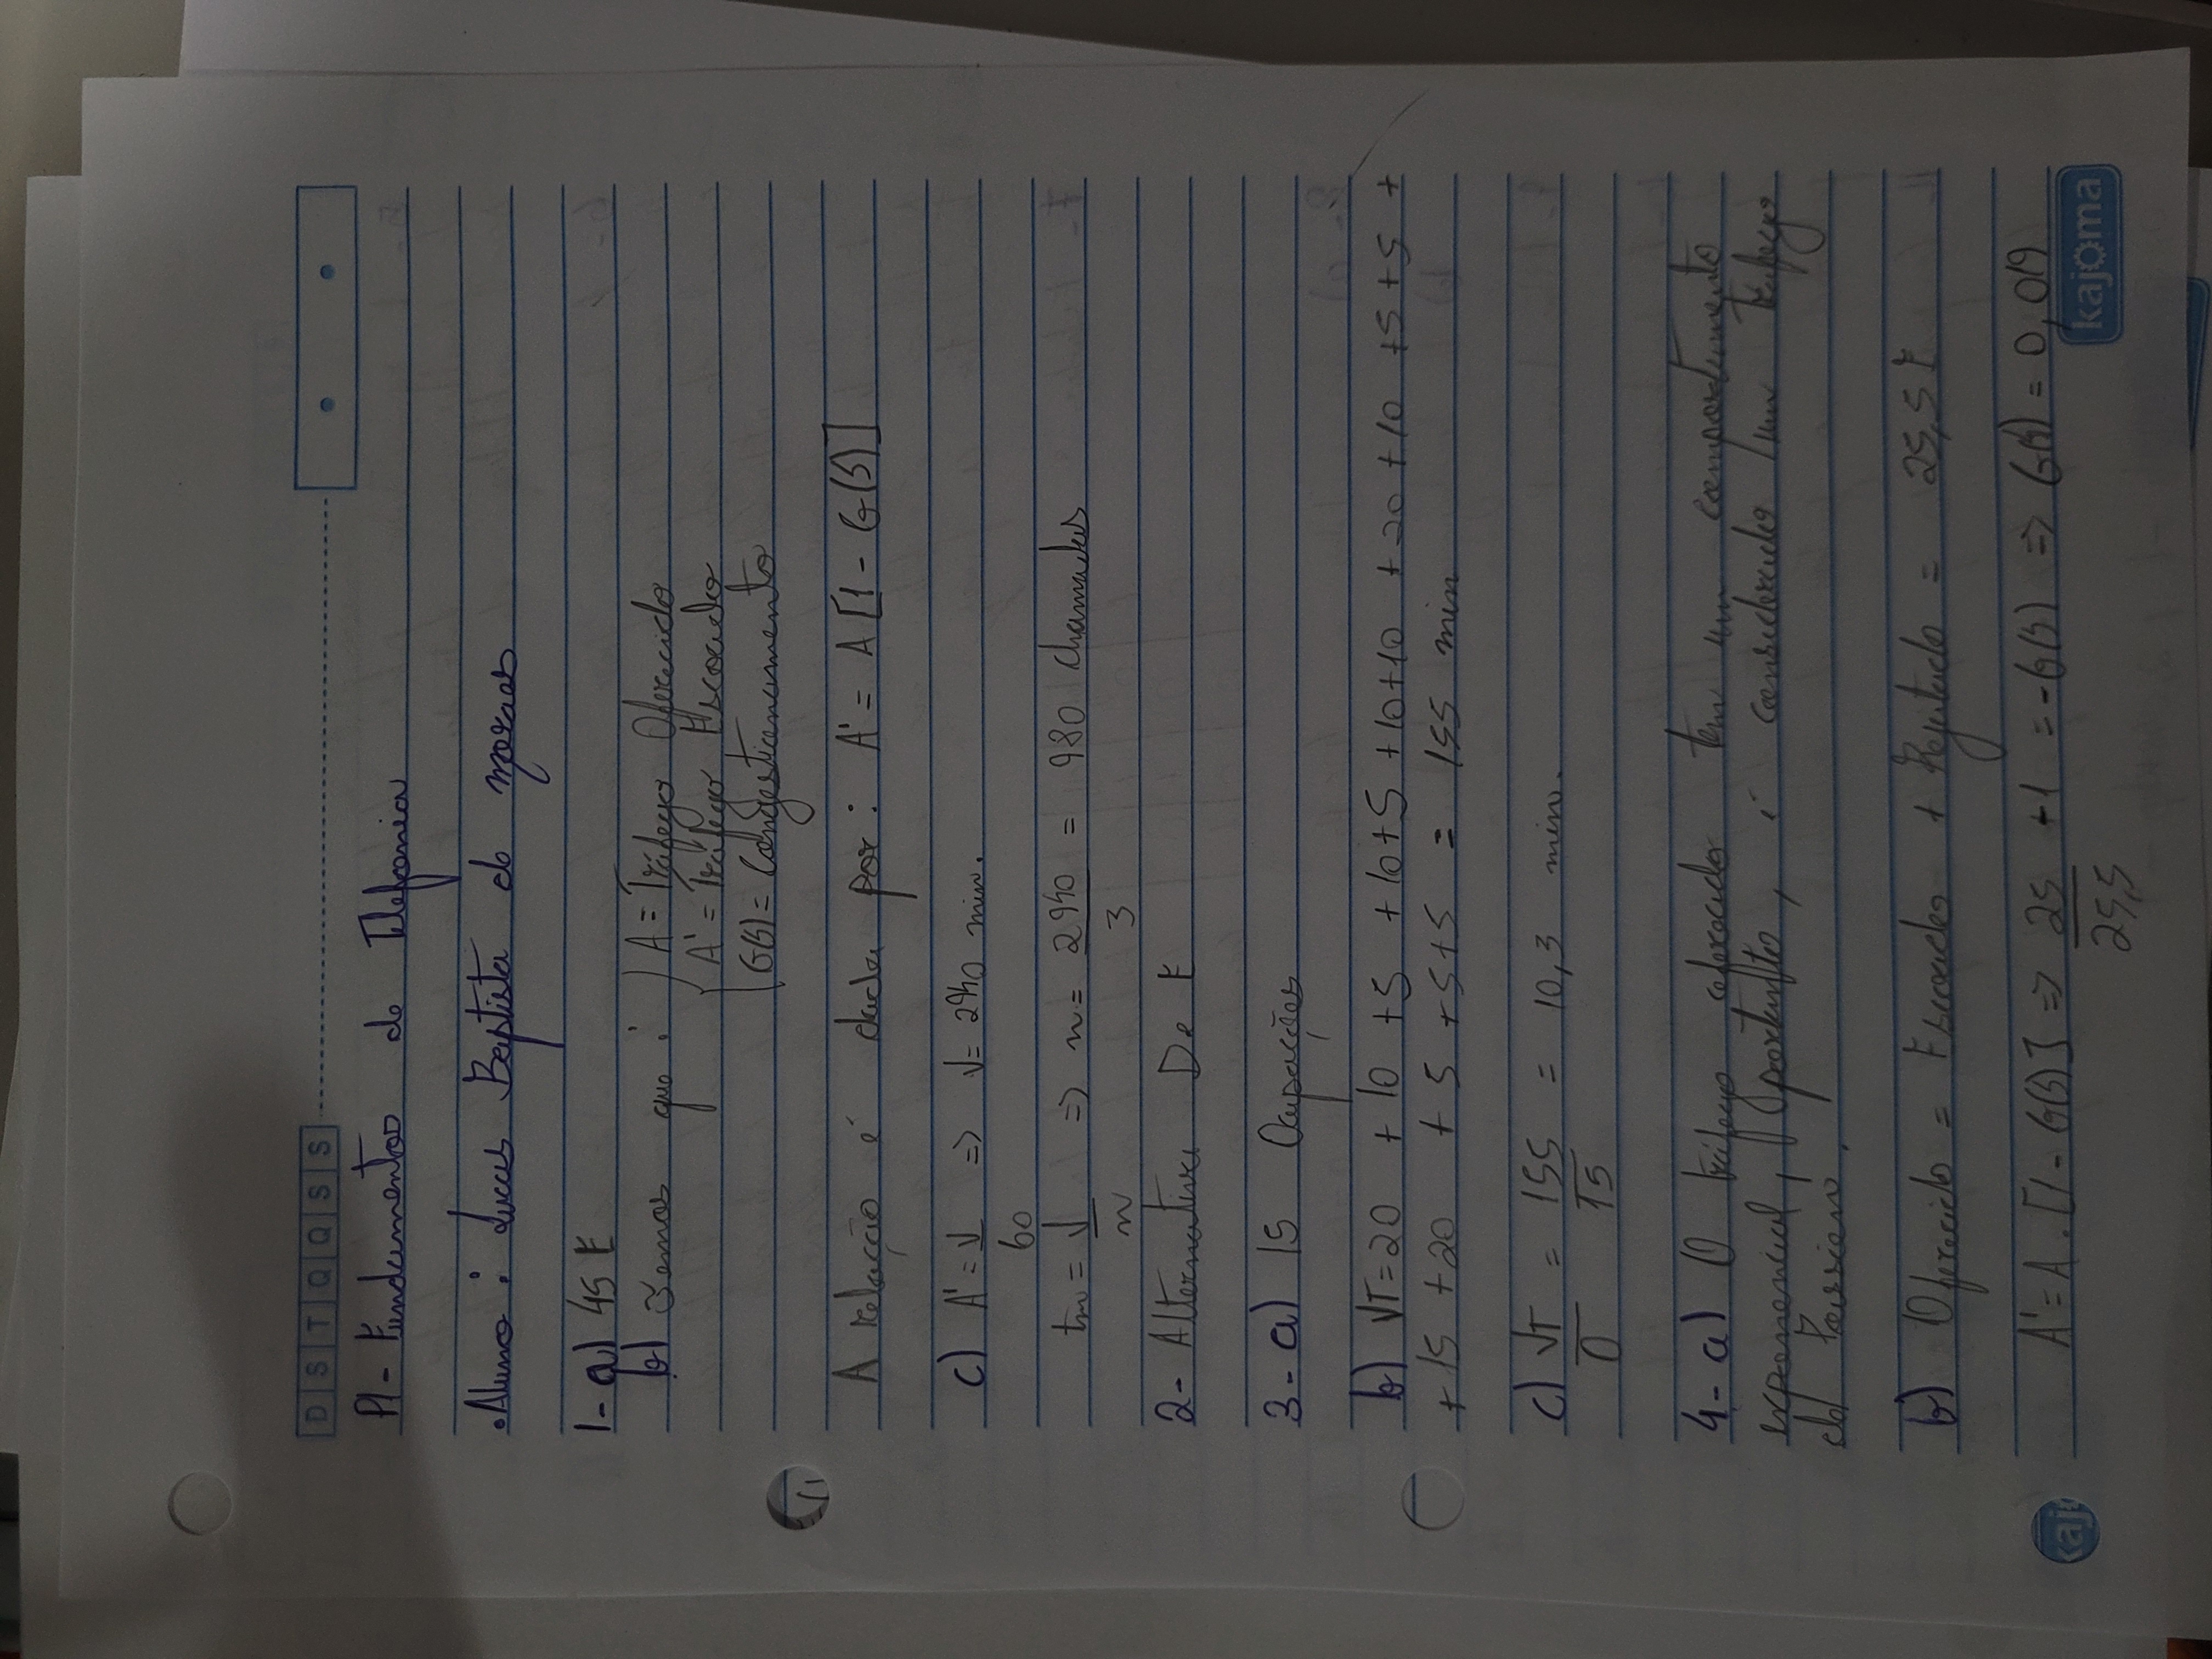 D S T Q Q S S
P1- Fundamentos de Telefonia
•Aluno: Lucas Baptista de moraes
1- a) 45 E
b) Temos que: A = Tráfego Oferecido
A' = Tráfego Escoado
G(S) = Congestionamento
A relação é dada por: A' = A [1 - G(S)]
c) A' = V/60 => V= 2940 min.
tm = V/n => n= 2940/3 = 980 chamadas
2- Alternativa De E
3- a) 15 Ocupações
b) VT= 20 + 10 +5 + 10+5 +10+10 +20 +10 +5 +5 +
+ 15 +20 + 5 +5+5 = 155 min
c) VT/O = 155/15 = 10,3 min.
4- a) O tráfego oferecido tem um comportamento
exponencial, portanto, é considerado um tráfego
de Poisson.
b) Oferecido = Escoado + Rejeitado = 25,5 E
A' = A . [1 - G(S)] => 25/25,5 -1 = -G(S) => G(S) = 0,019
kajoma